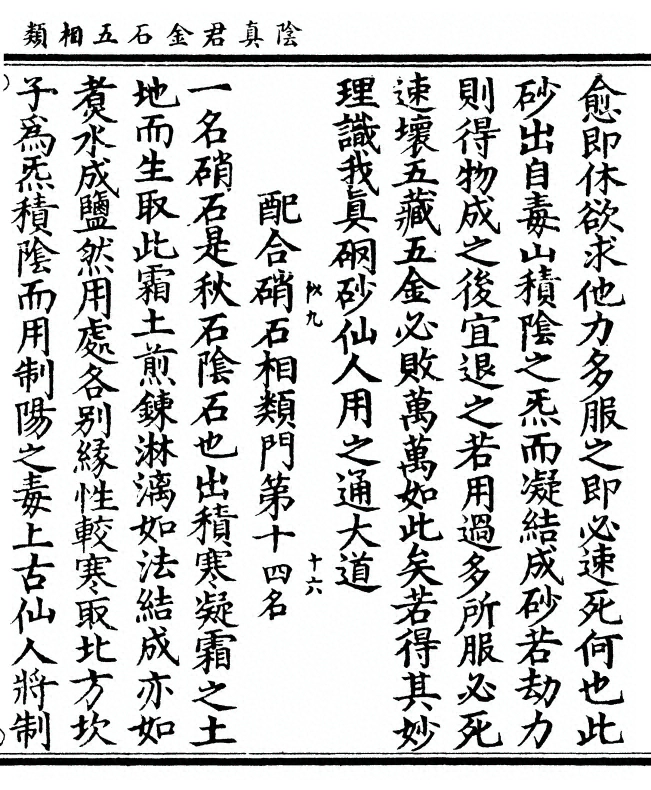 陰真君金石五相類
愈即休欲求他力多服之即必速死何也此
砂出自毒山積陰之炁而凝結成砂若劫力
則得物成之後宜退之若用過多所服必死
速壞五藏五金必敗萬萬如此矣若得其妙
理識我真硇砂仙人用之通大道
配合硝石相類門第十四名
秋九
十六
一名硝石是秋石陰石也出積寒凝霜之土
地而生取此霜土煎鍊淋漓如法結成亦如
煑水成鹽然用處各別緣性較寒取北方坎
子為炁積陰而用制陽之毒上古仙人將制